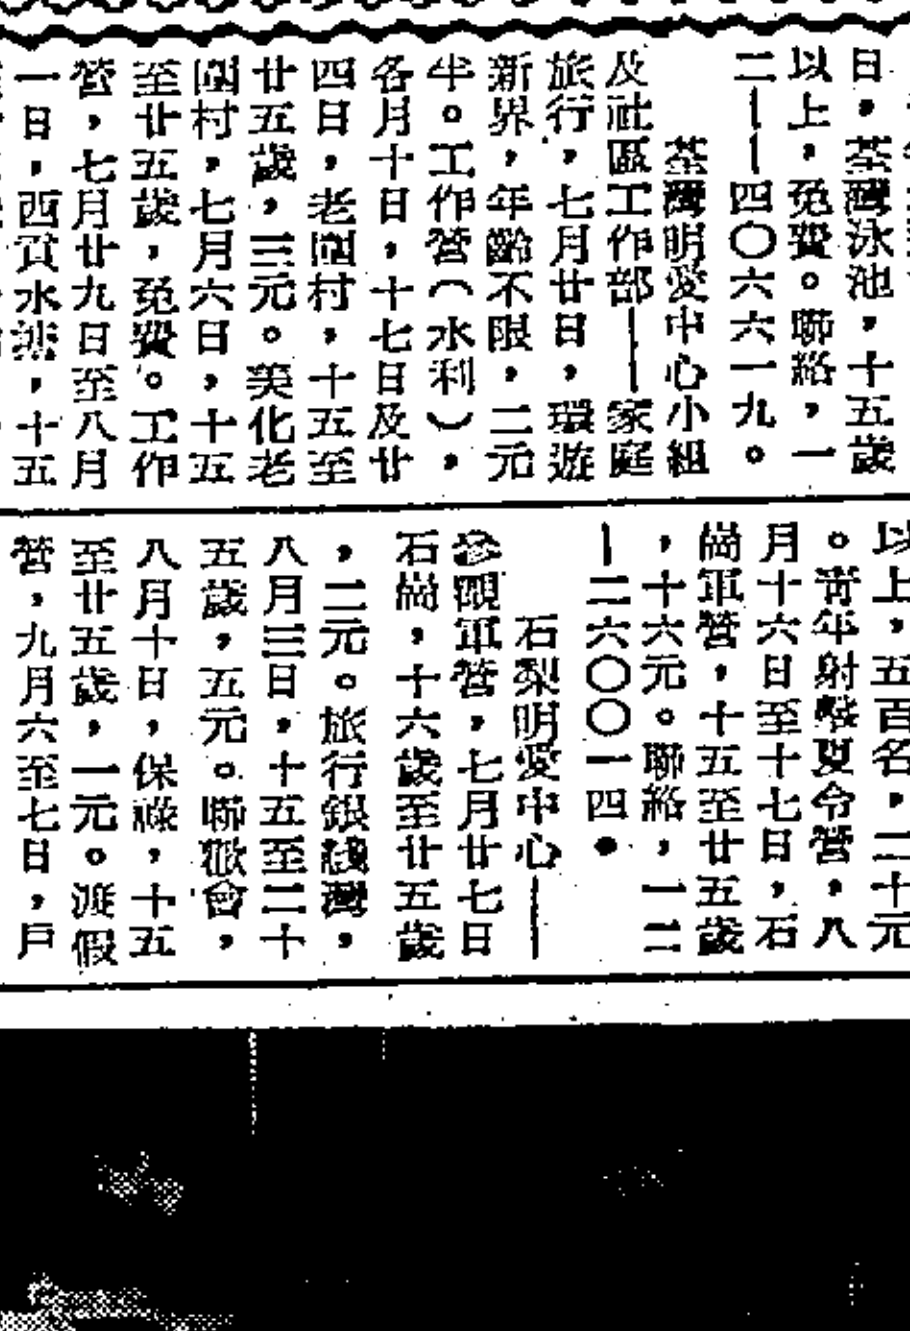 日，荃灣泳池，十五歲
以上，免費。聯絡，一
二——四〇六六一九。
荃灣明愛中心小組
及社區工作部——家庭
旅行，七月廿日，環遊
新界，年齡不限，二元
半。工作營（水利），
各月十日，十七日及廿
四日，老圍村，十五至
廿五歲，三元。美化老
圍村，七月六日，十五
至廿五歲，免費。工作
營，七月廿九日至八月
一日，西貢水塘，十五
以上，五百名，二十元
。青年射擊夏令營，八
月十六日至十七日，石
崗軍營，十五至廿五歲
，十六元。聯絡，一二
—二六〇〇一四。
石梨明愛中心——
參觀軍營，七月廿七日
石崗，十六歲至廿五歲
，二元。旅行銀綫灣，
八月三日，十五至二十
五歲，五元。聯歡會，
八月十日，保祿，十五
至廿五歲，一元。渡假
營，九月六至七日，戶